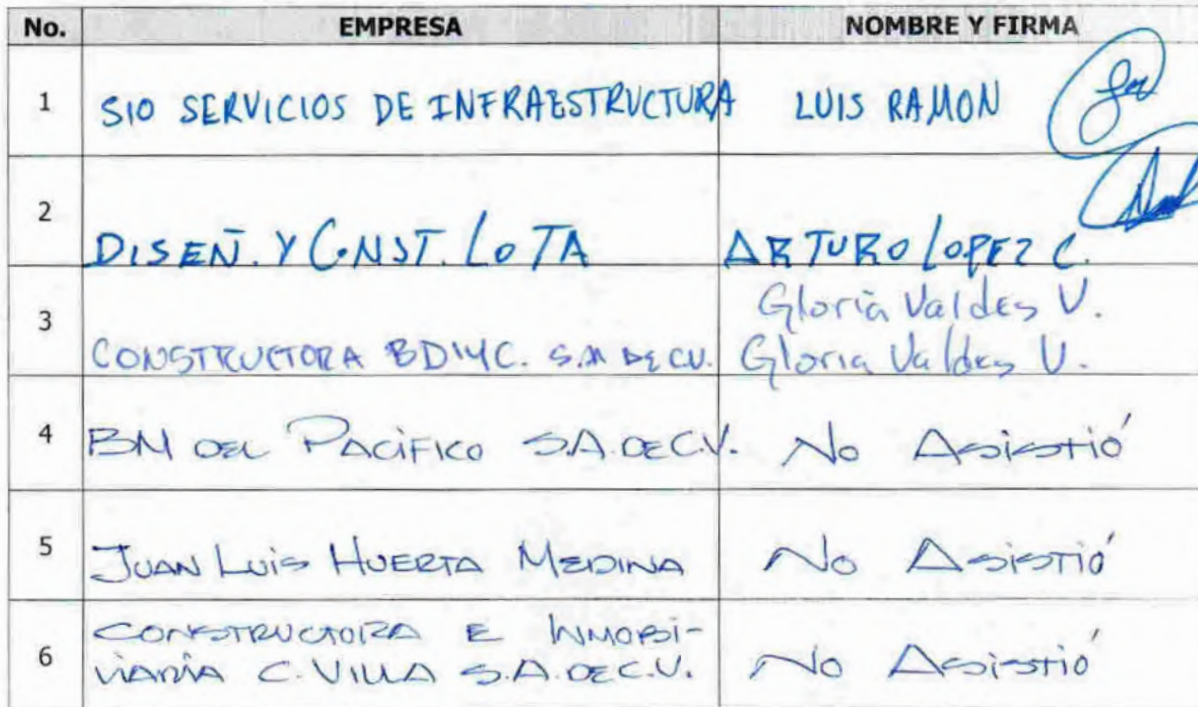 No. EMPRESA NOMBRE Y FIRMA
1 SIO SERVICIOS DE INFRAESTRUCTURA LUIS RAMON
2 DISEÑ. Y CONST. LOTA ARTURO LOPEZ C.
Gloria Valdes V.
3 CONSTRUCTORA BDIYC. S.A DE CV. Gloria Valdes V.
4 BM DEL PACÍFICO S.A. DE C.V. No Asistió
5 JUAN LUIS HUERTA MEDINA No Asistió
CONSTRUCTORA E INMOBI-
6 LIARIA C. VILLA S.A. DE C.V. No Asistió